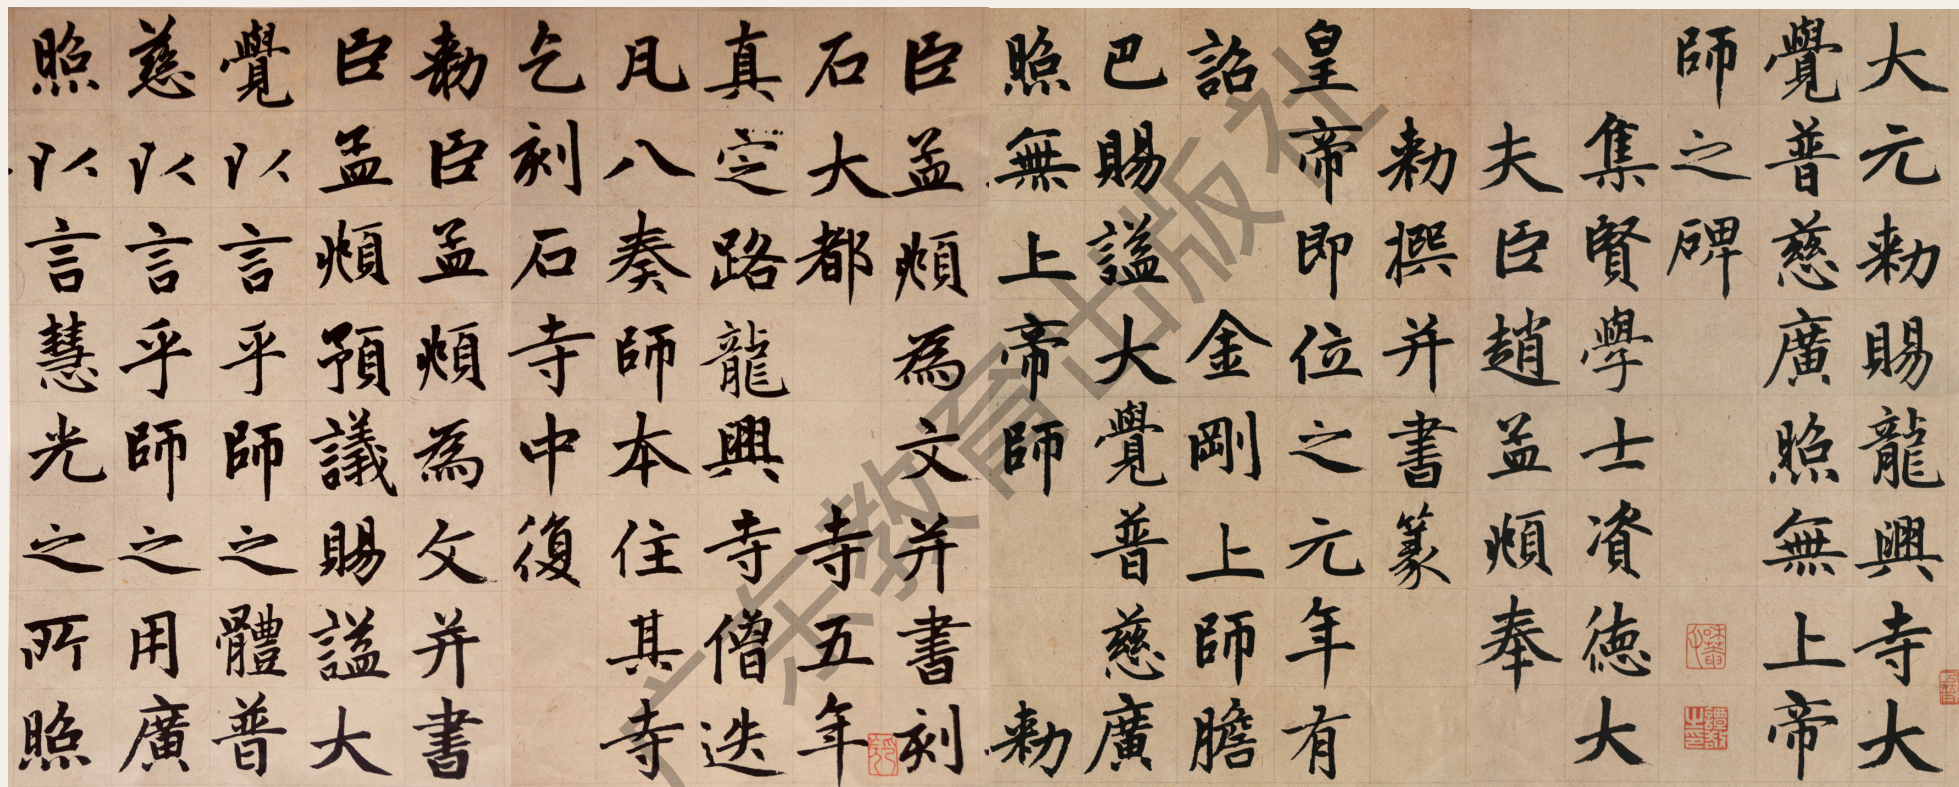 大元勅賜龍興寺大
覺普慈廣照無上帝
師之碑
集賢學士資德大
夫臣趙孟頫奉
勅撰并書篆
皇帝即位之元年有
詔金剛上師膽
巴賜謚大覺普慈廣
照無上帝師勅
臣孟頫為文并書刻
石大都寺五年
真定路龍興寺僧迭
凡八奏師本住其寺
乞刻石寺中復
勅臣孟頫為文并書
臣孟頫預議賜謚大
覺以言乎師之體普
慈以言乎師之用廣
照以言慧光之所照
广东教育出版社